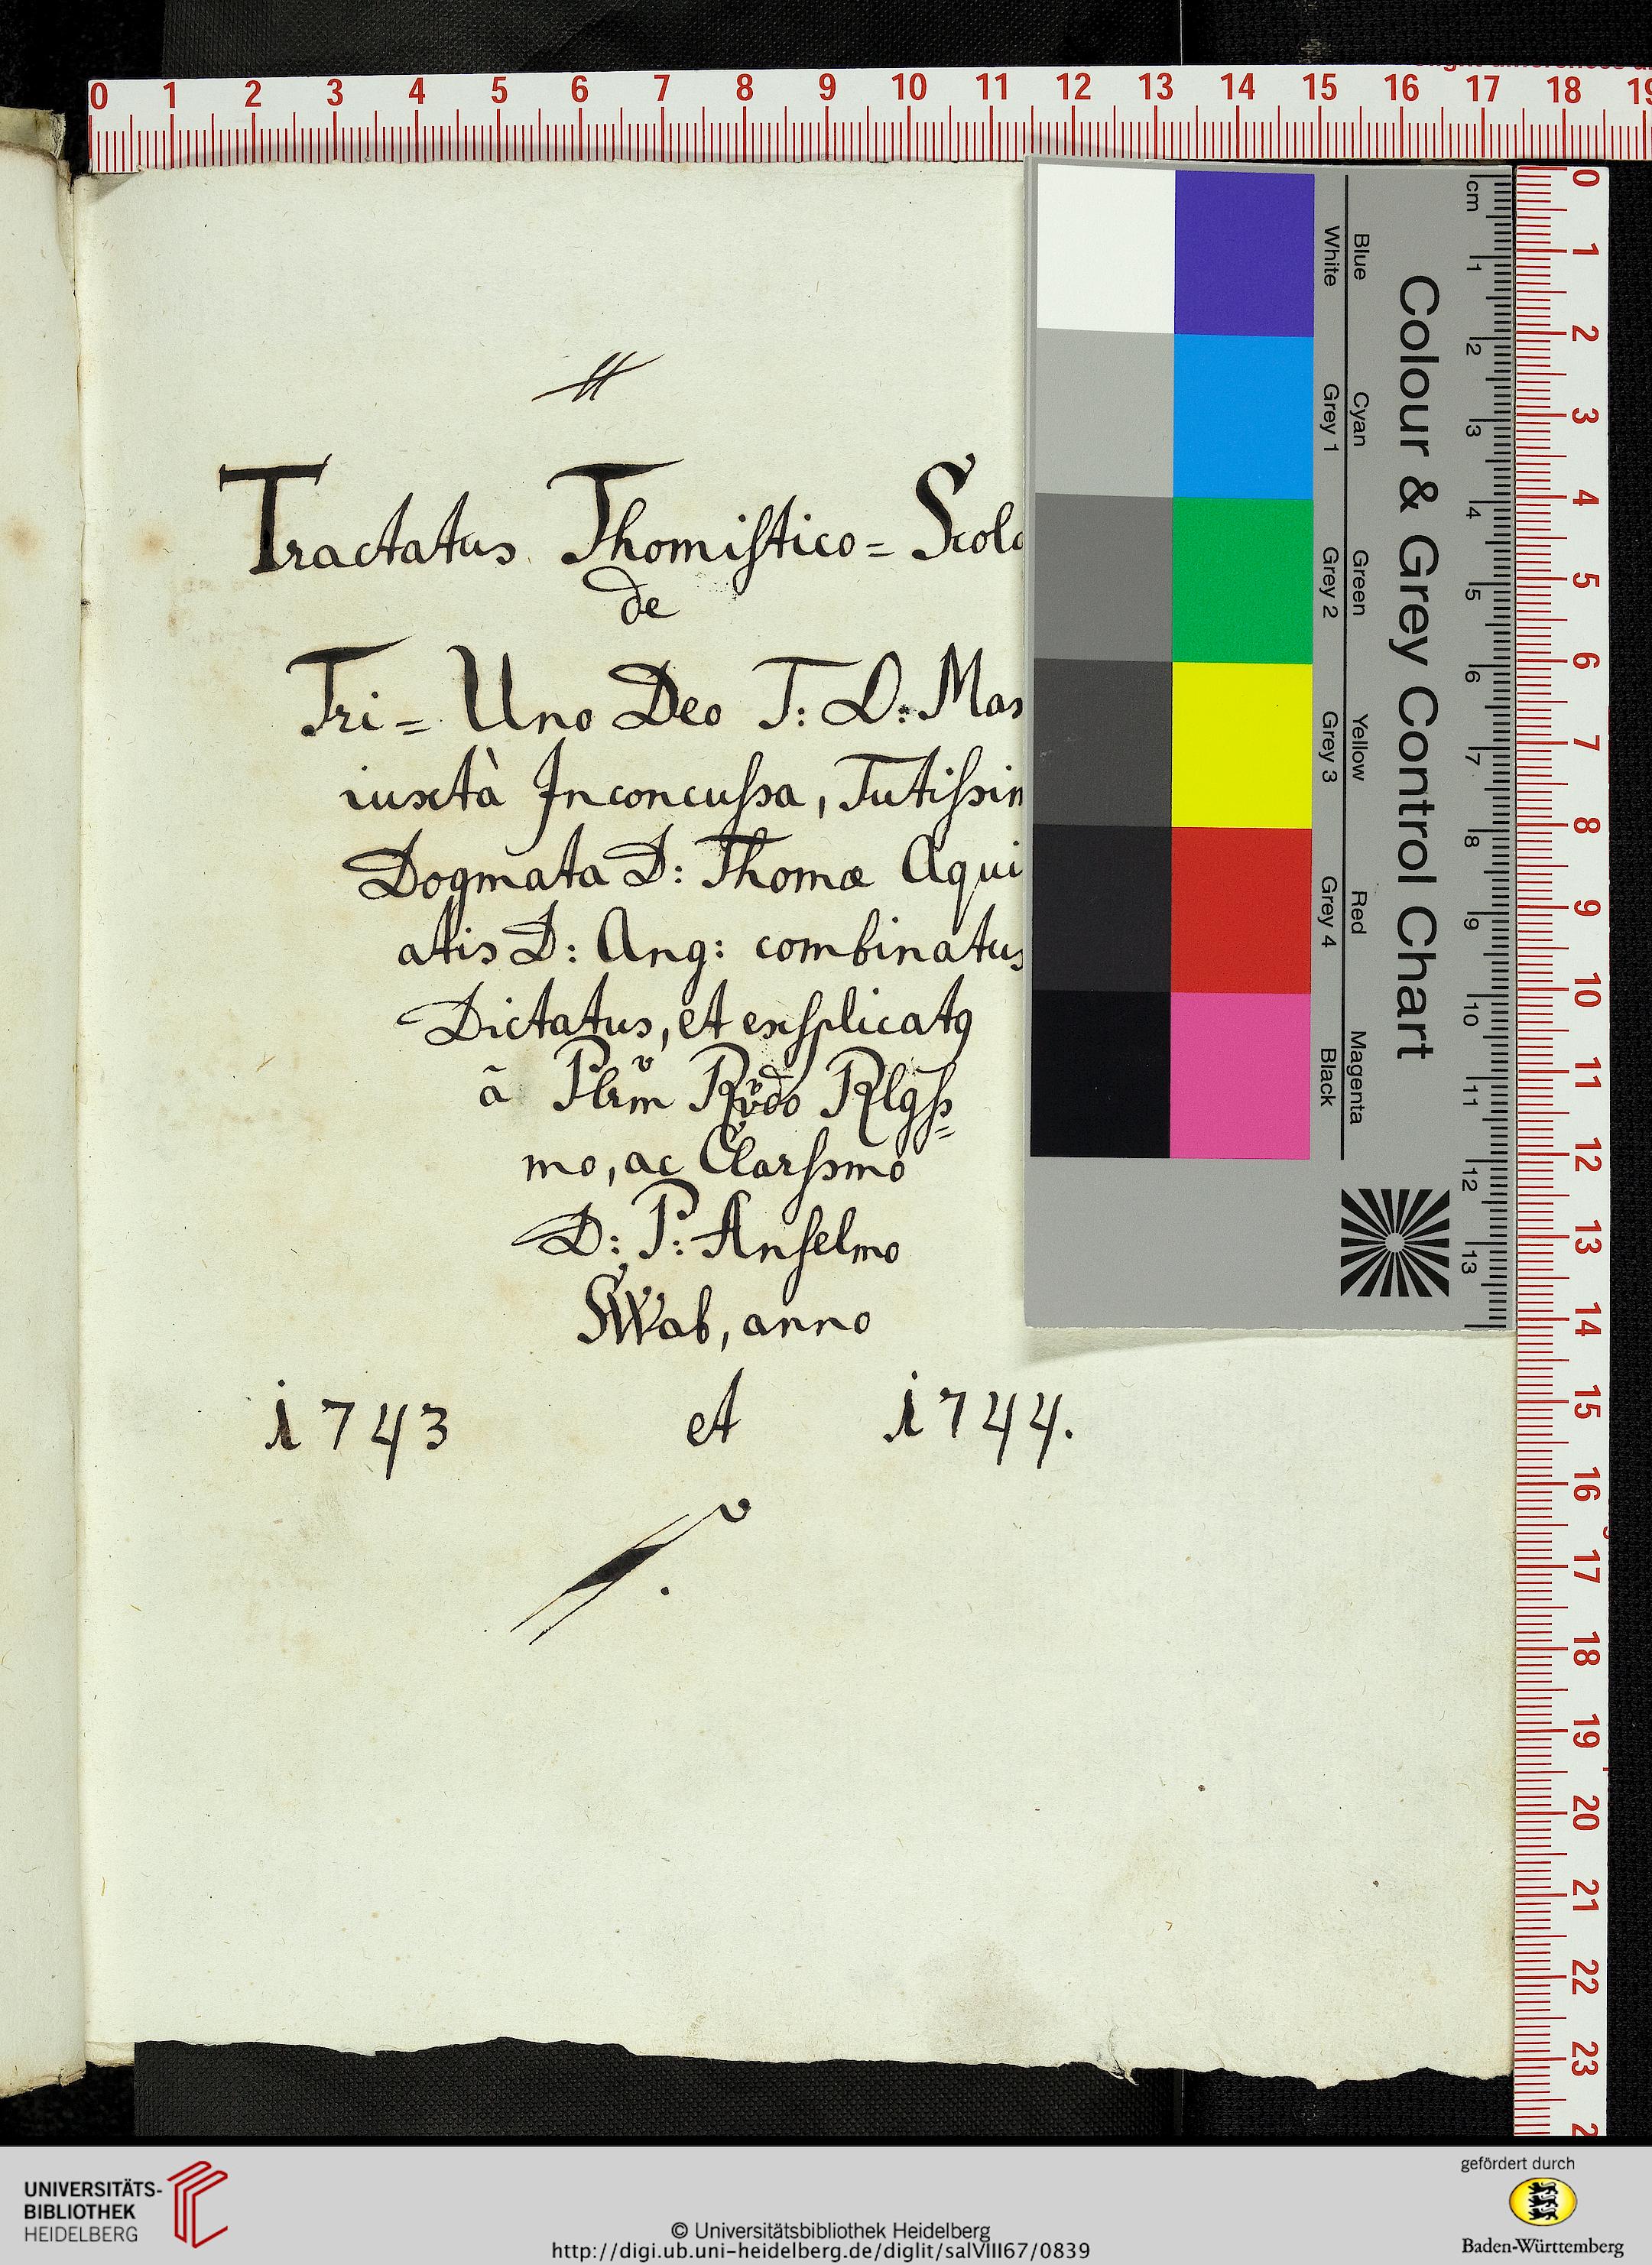 0 1 2 3 4 5 6 7 8 9 10 11 12 13 14 15 16 17 18 19
Tractatus Thomistico= Scola
de
Tri= Uno Deo T: O: Max
iuxtà Inconcussa, Tutissim
Dogmata D: Thomæ Aqui
atis D: Ang: combinatus
Dictatus, et explicatq
ã Plrm Rvdo Rlgss=
mo, ac Clarssmo
D: P: Anselmo
SWab, anno
1743 et 1744.
Colour & Grey Control Chart
Blue Cyan Green Yellow Red Magenta
White Grey 1 Grey 2 Grey 3 Grey 4 Black
cm 1 2 3 4 5 6 7 8 9 10 11 12 13
0 1 2 3 4 5 6 7 8 9 10 11 12 13 14 15 16 17 18 19 20 21 22 23
UNIVERSITÄTS-
BIBLIOTHEK
HEIDELBERG
© Universitätsbibliothek Heidelberg
http://digi.ub.uni-heidelberg.de/diglit/salVIII67/0839
gefördert durch
Baden-Württemberg